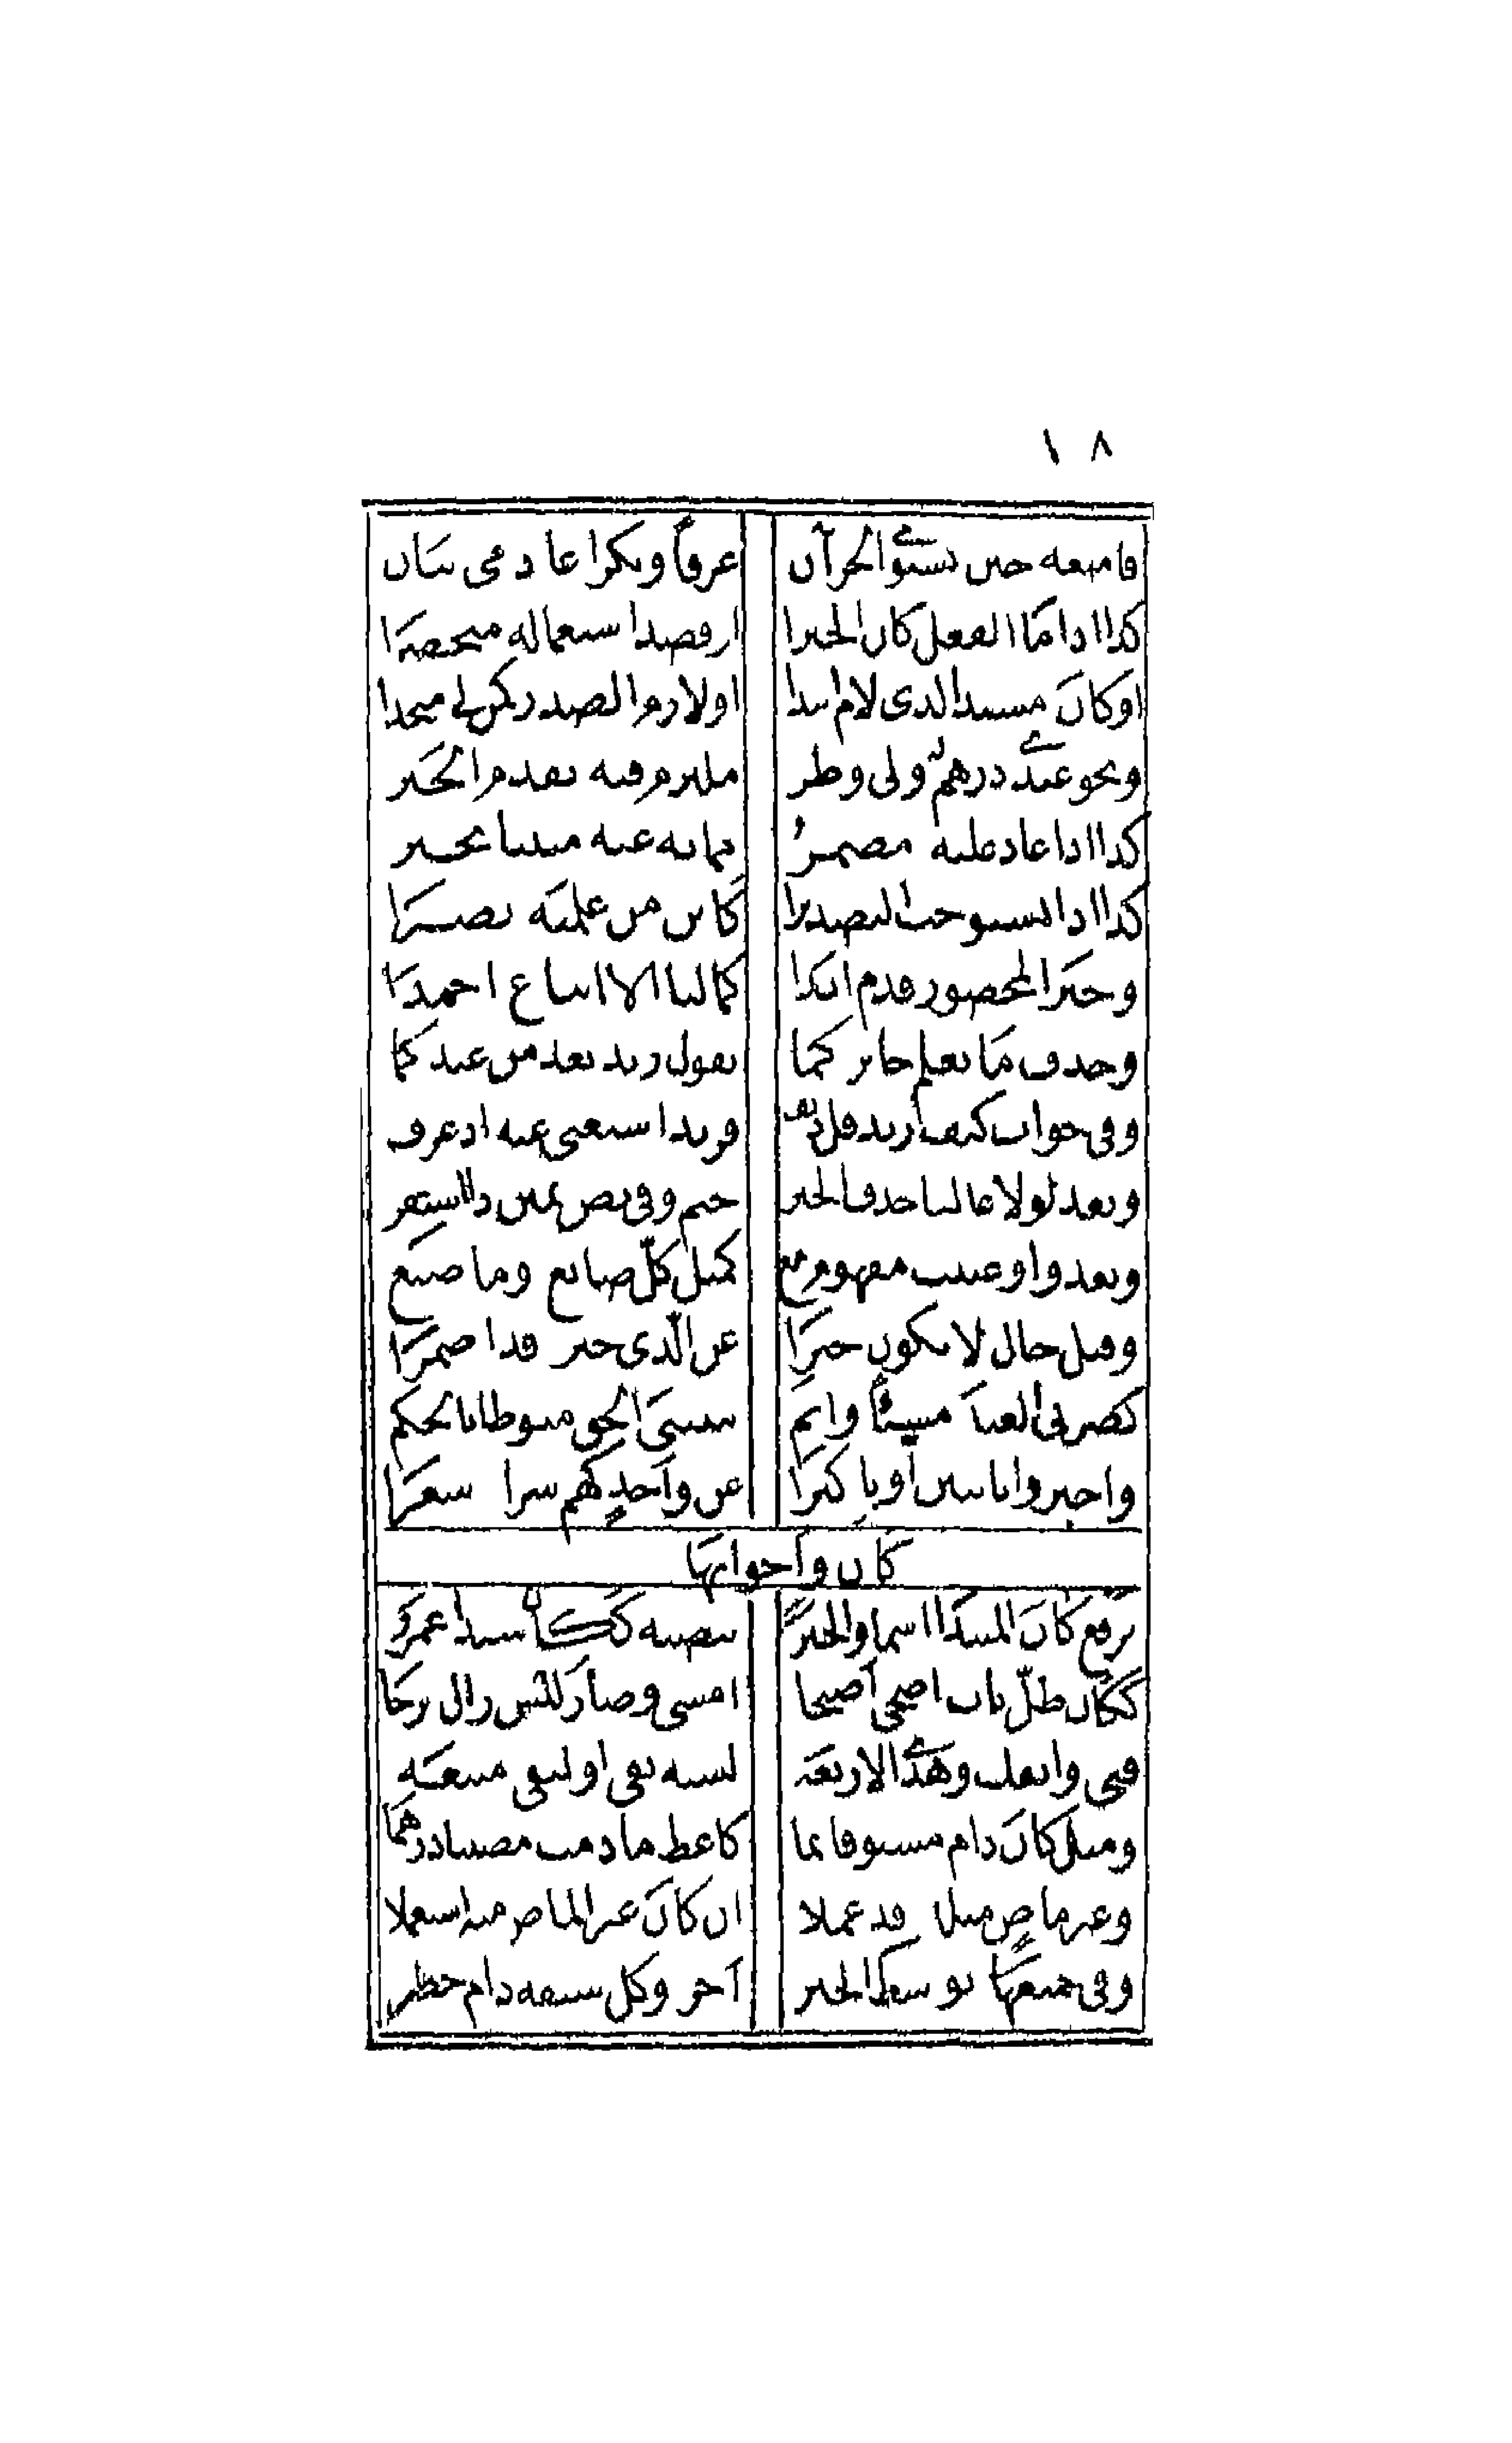 ١٨
فامنعه حين يستوي الجزآن عرفا ونكرا عادمي بيان
كذا اذا ما الفعل كان الخبرا او قصد استعماله منحصرا
او كان مسندا لذي لام ابتدا او لازم الصدر كمن لي منجدا
ونحو عندي درهم ولي وطر ملتزم فيه تقدم الخبر
كذا اذا عاد عليه مضمر مما به عنه مبينا يخبر
كذا اذا يستوجب التصديرا كاين من علمته نصيرا
وخبر المحصور قدم ابدا كما لنا الا اتباع احمدا
وحذف ما يعلم جائز كما تقول زيد بعد من عندكما
وفي جواب كيف زيد قل دنف فزيد استغني عنه اذ عرف
وبعد لولا غالبا حذف الخبر حتم وفي نص يمين ذا استقر
وبعد واو عينت مفهوم مع كمثل كلّ صانع وما صنع
وقبل حال لا يكون خبرا عن الّذي خبره قد اضمرا
كضربي العبد مسيئا واتم تبييني الحق منوطا بالحكم
واخبروا باثنين او باكثرا عن واحدٍ كهم سراة شعرا
كان واخواتها
ترفع كان المبتدا اسما والخبر تنصبه ككان سيدا عمر
ككان ظلّ بات اضحى اصبحا امسى وصار ليس زال برحا
فتئ وانفك وهذي الاربعة لشبه نفي او لنفي متبعه
ومثل كان دام مسبوقا بما كاعط ما دمت مصيبا درهما
وغير ماضٍ مثله قد عملا ان كان غير الماض منه استعملا
وفي جميعها توسط الخبر اجز وكل سبقه دام حظر